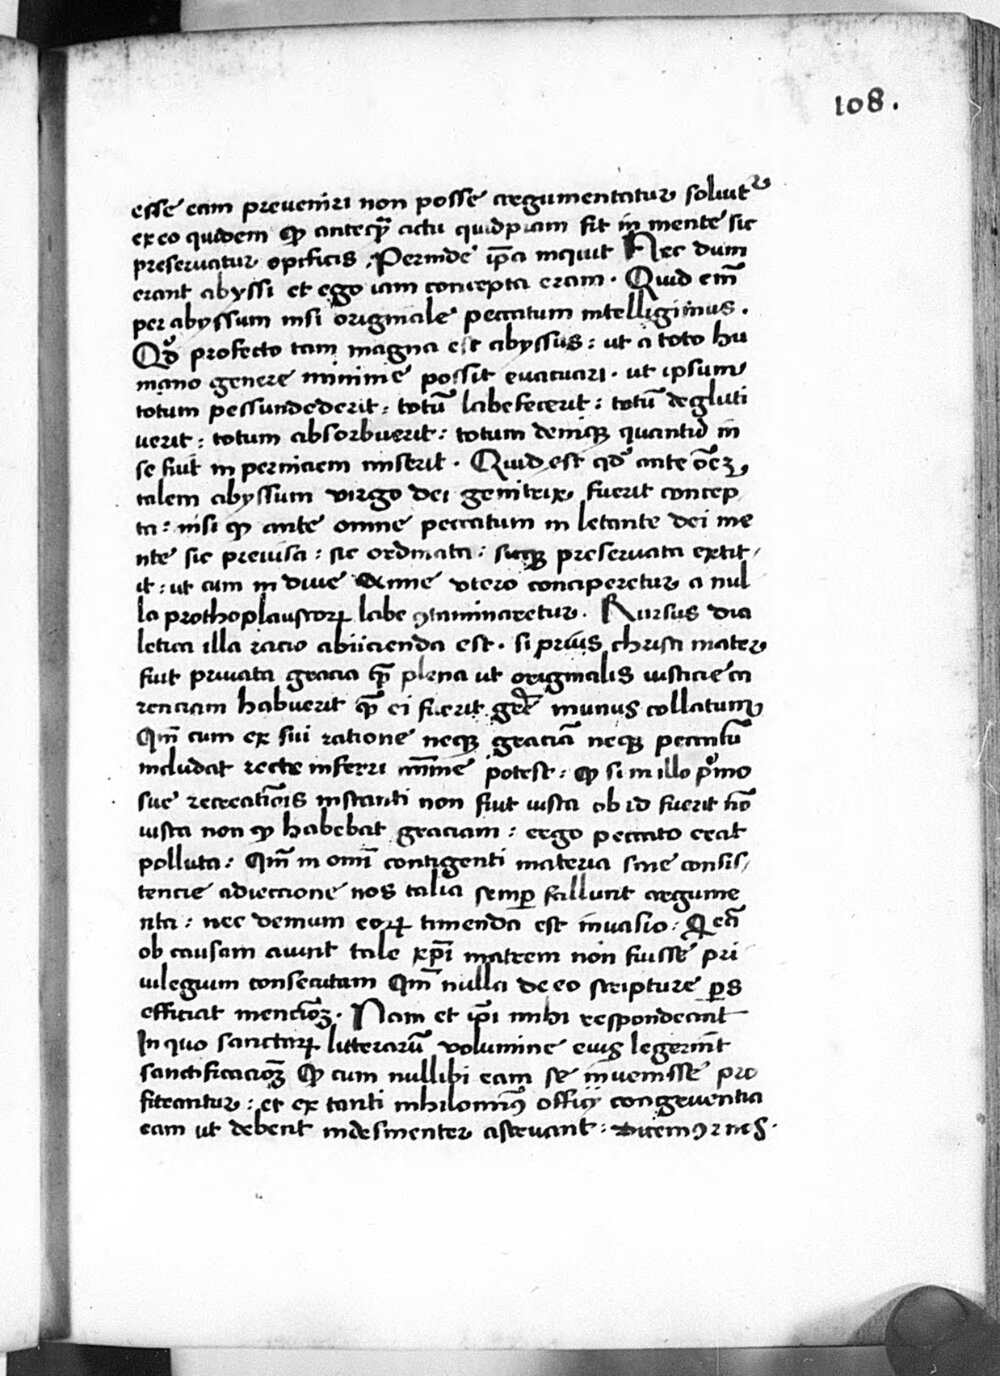 108.
esse eam preveniri non posse argumentatur solvit᷑
ex eo quidem qͥ anteqᷓ actu quidpiam sit in mente sic
preservatur opificis . Perinde ip̅a inquit Nec dum
erant abyssi et ego iam concepta eram . Quid em̅
per abyssum nisi originale peccatum intelligimus .
Qͦd profecto tam magna est abyssus : ut a toto hu
mano genere minime possit evacuari . ut ipsum
totum pessundederit : totu̅ labefecerit : totu̅ degluti
verit : totum absorbuerit : totum deniqꝫ quantu̅ in
se fuit in perniciem miserit . Quid est qͦd ante o̅eꝫ
talem abyssum virgo dei genitrix fuerit concep
ta : nisi ꝙ ante omne peccatum in letante dei me
nte sic previsa : sic ordinata : sicqꝫ preservata extit
it : ut cum in dive Anne utero conciperetur a nul
la prothoplaustoꝝ labe ꝯtaminaretur . Rursus dia
letica illa racio abiicienda est . si prius christi mater
fuit privata gracia qᷓ plena ut originalis iusticie ca
renciam habuerit qᷓ ei fuerit gr̅e munus collatum
Qm̅ cum ex sui ratione neqꝫ gracia̅ neqꝫ peccatu̅
includat recte inferri mi̅me potest : ꝙ si in illo pͥmo
sue recreatio̅is instanti non fuit iusta ob id fuerit no̅
iusta non ꝙ habebat graciam : ergo peccato erat
polluta : Qm̅ in omi̅ contigenti materia sine consis
tencie adieccione nos talia semꝑ fallunt argume
nta : nec demum eoꝝ timenda est invasio : Qea̅
ob causam aiunt tale xp̅i matrem non fuisse pri
vilegium consecutam Qm̅ nulla de eo scripture ꝑs
efficiat mencio̅ꝫ . Nam et ip̅i mihi respondeant
In quo sanctaꝝ litteraru̅ volumine eius legerint
sanctificacio̅ꝫ ꝙ cum nullibi eam se invenisse pro
fiteantur : et ex tanti nihilomiꝰ officij congruentia
eam ut debent indesinenter astruant :